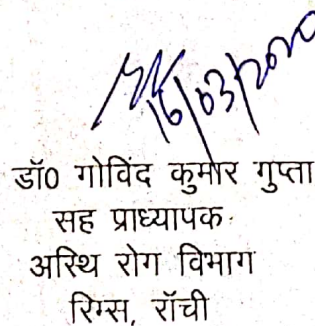 16/03/2020
डॉ0 गोविंद कुमार गुप्ता
सह प्राध्यापक
अस्थि रोग विभाग
रिम्स, राँची